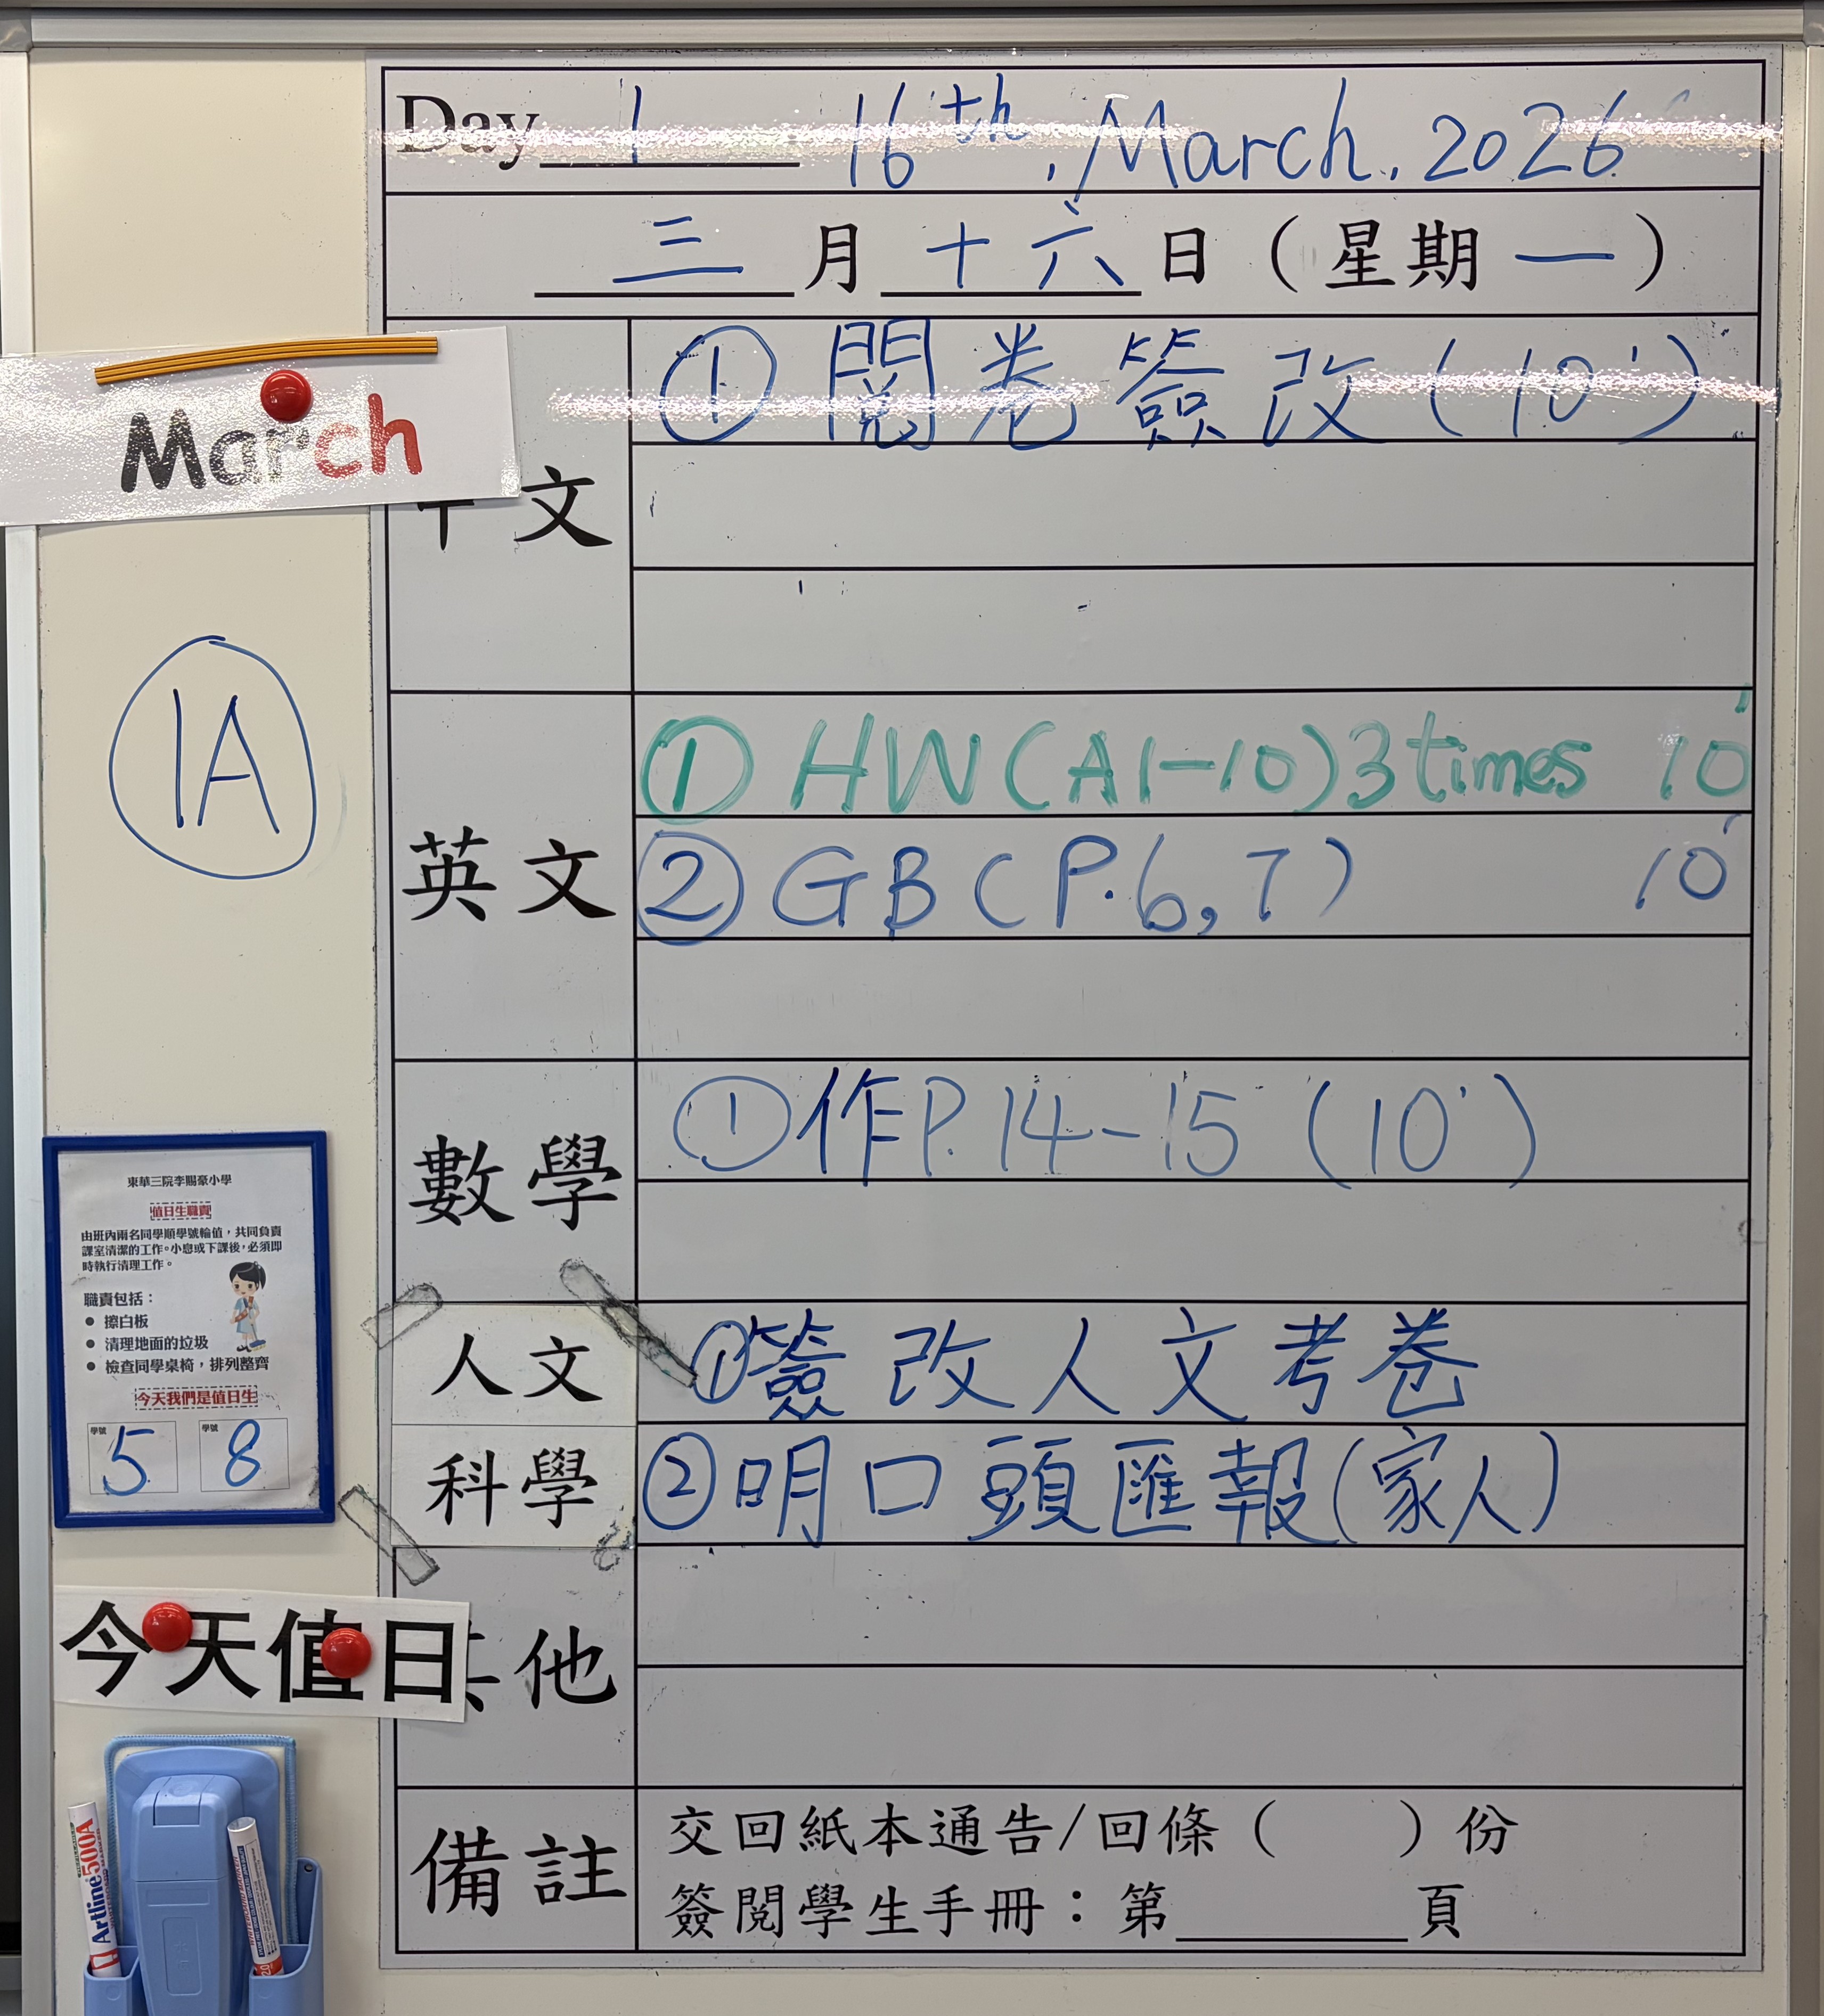 Day 1 16th, March, 2026
三月十六日（星期一）
March
中文
① 閱卷簽改(10')
1A
英文
① HW(A1-10)3times 10'
② GB(P.6,7) 10'
數學
①作P.14-15 (10')
人文
①簽改人文考卷
科學
②明口頭匯報(家人)
其他
備註
交回紙本通告/回條（ ）份
簽閱學生手冊：第 頁
東華三院李賜豪小學
值日生職責
由班內兩名同學順學號輪值，共同負責
課室清潔的工作。小息或下課後，必須即
時執行清理工作。
職責包括：
● 擦白板
● 清理地面的垃圾
● 檢查同學桌椅，排列整齊
今天我們是值日生
學號 5 學號 8
今天值日
Artline 500A